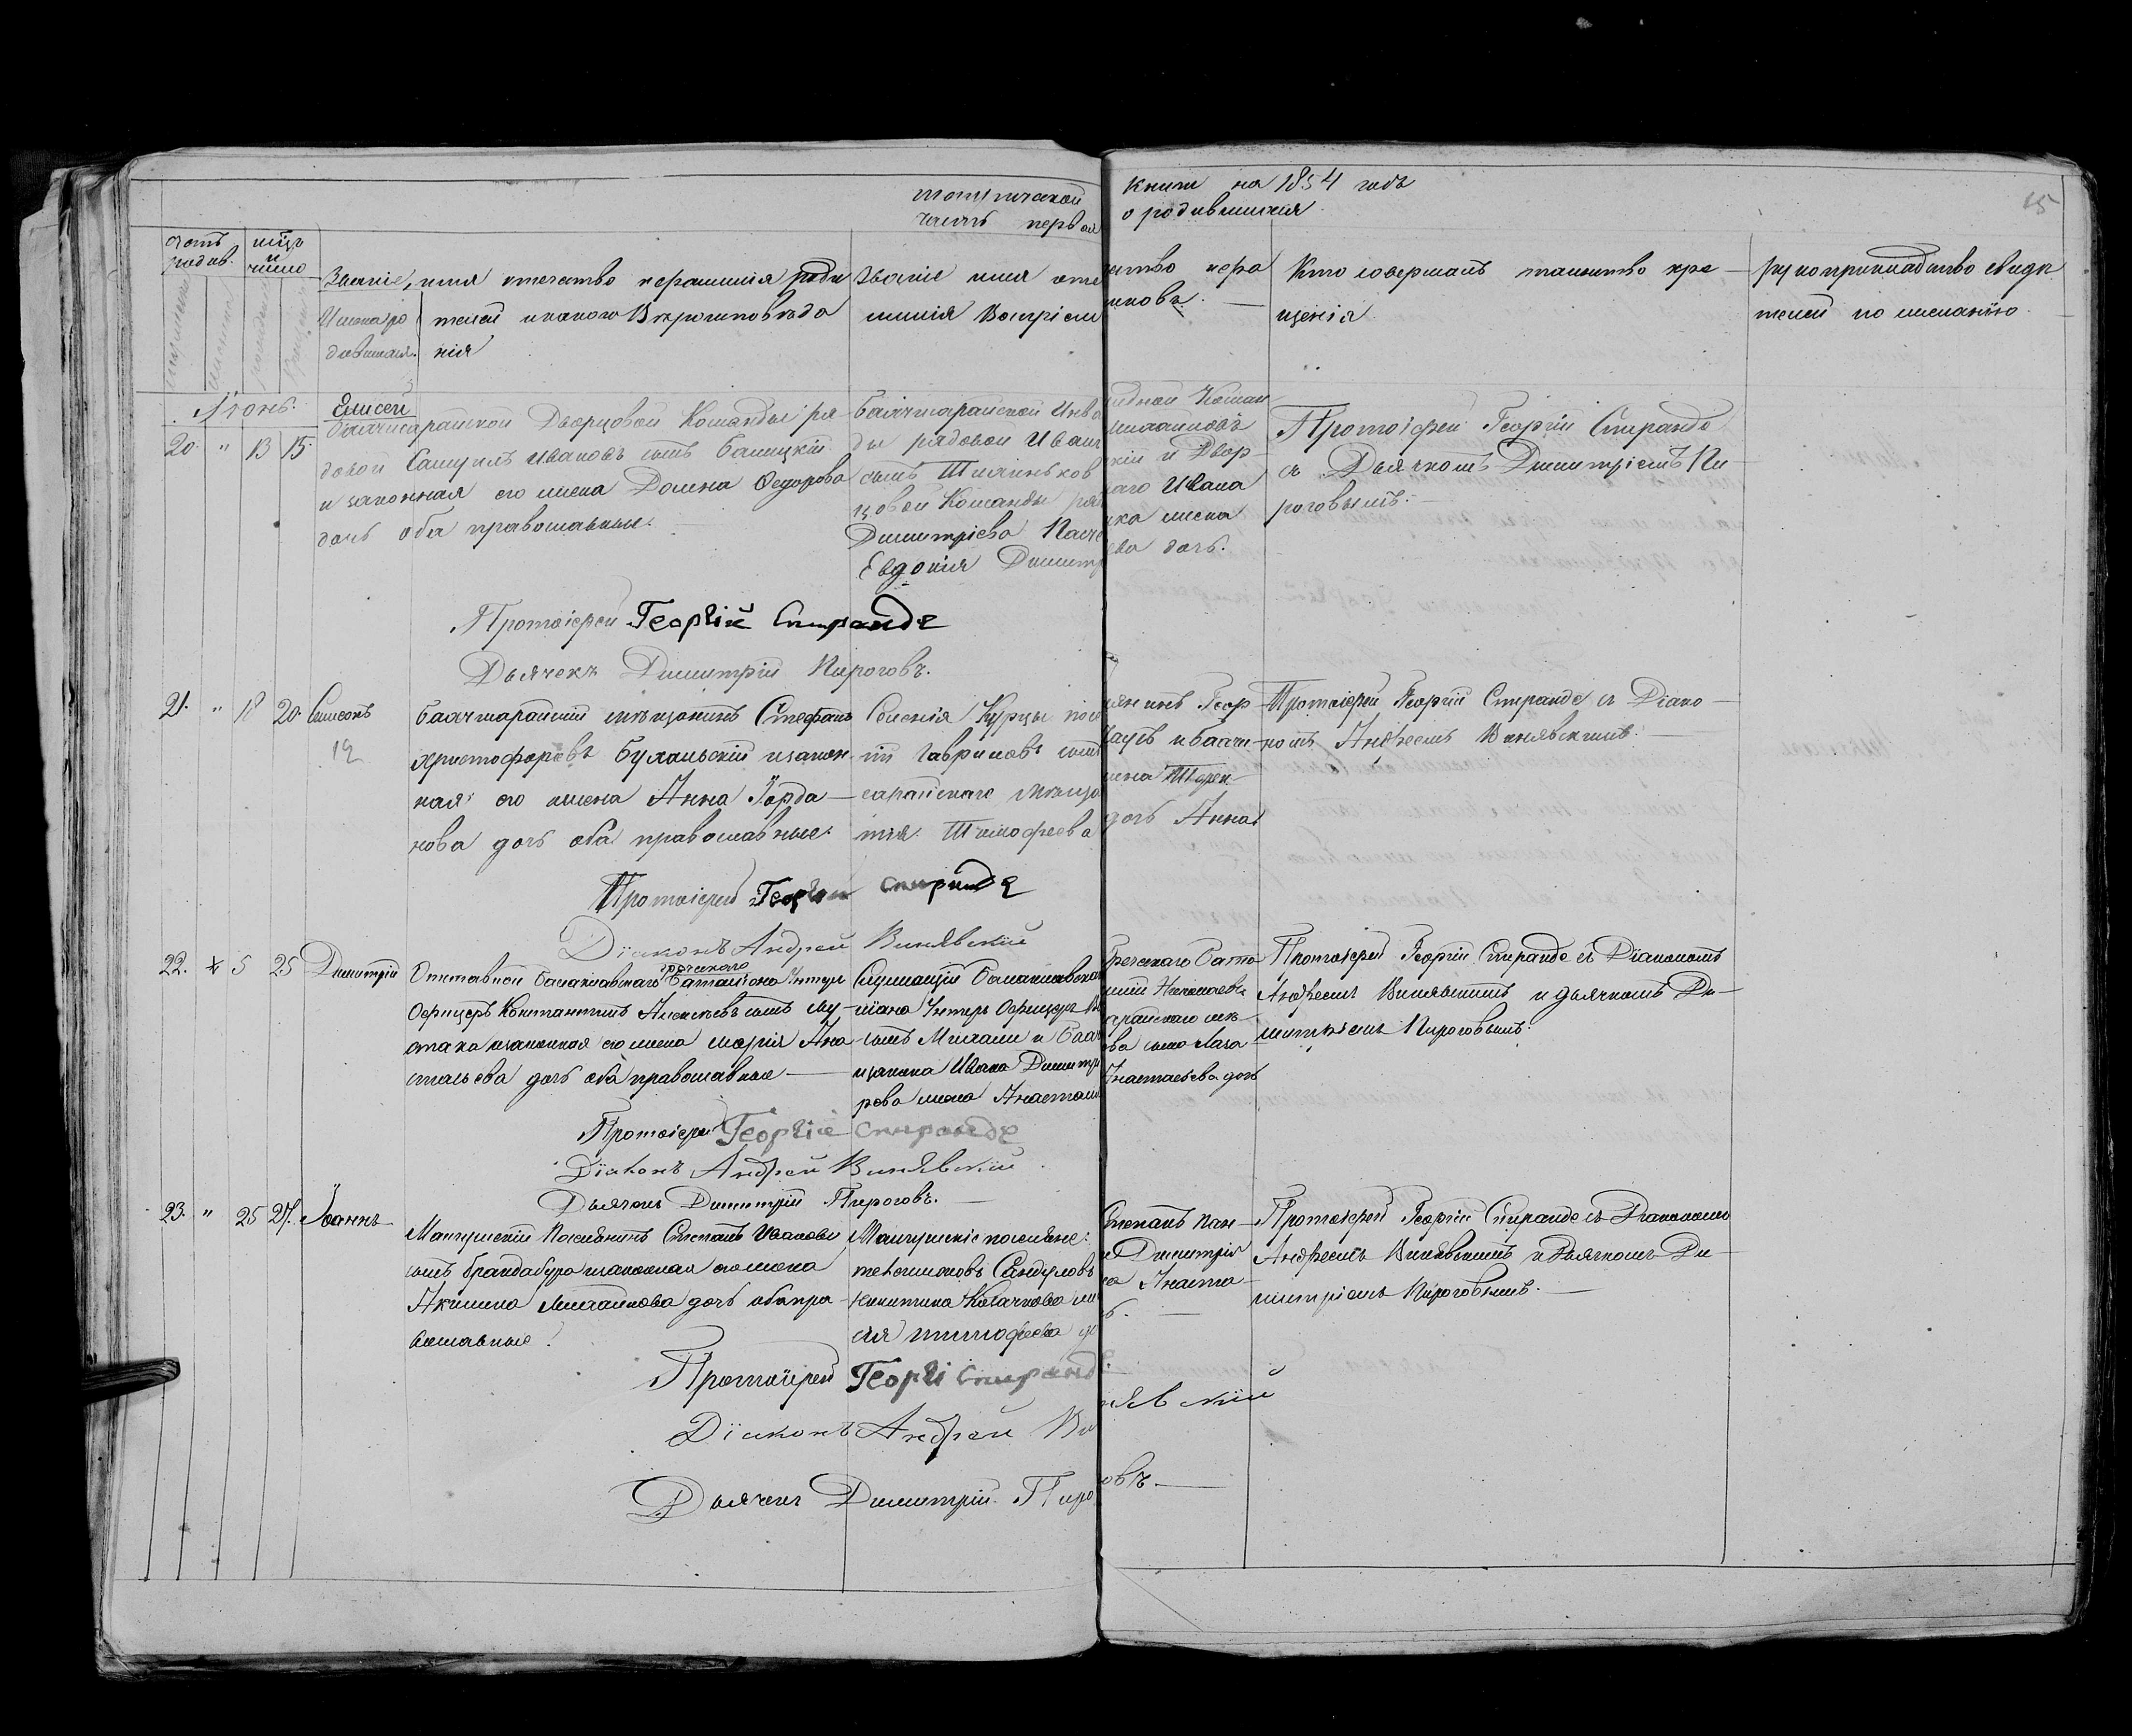 метрической книги на 1854 годъ
часть первая о родившихся
15
счетъ родив.
мѣцъ и число
Имена родившихся.
Званіе, имя отечество и фамилія роди
телей и какого Вѣроисповѣда
нія
Званіе имя отечество и фа
милія Воспріемниковъ.
Кто совершалъ таинство кре-
щенія
рукоприкладство свидѣ
телей по желанію
Іюнь.
20. " 13 15.
Елисей
Бахчисарайской Дворцовой Команды ря
довой Самуилъ Ивановъ сынъ
и законная его жена Домна Федорова
дочь оба православные.
Бахчисарайской Инвалидной Коман
ды рядовой Иванъ Михайловъ
сынъ и Двор-
цовой Команды Ивана
Димитріева жена
Евдокія Димитріева дочь.
Протоіерей Георгій Спиранде
съ Дьячкомъ Димитріемъ Пи
роговымъ.
Протоіерей Георгій Спиранде
Дьячекъ Димитрій Пироговъ.
21. " 18 20. Симеонъ
12
Бахчисарайскій мѣщанинъ Стефанъ
Христофоровъ и закон-
ная его жена Анна Іорда-
нова дочь оба православные.
Селенія Курцы поселянинъ Геор-
гій Гавриловъ сынъ и Бахчи-
сарайскаго мѣщанина
Тимофеева дочь Анна
Протоіерей Георгій Спиранде съ Діако-
номъ Андреемъ Винявскимъ.
Протоіерей Георгій Спиранде
Діаконъ Андрей Винявскій
22. 5 25 Димитрій
Отставной Балаклавскаго Греческаго Баталіона Унтеръ
Офицеръ Константинъ Алексѣевъ сынъ Му-
и законная его жена Марія Ана
стасьева дочь оба православные
Служащій Балаклавскаго Греческаго Бата
ліона Унтеръ Офицеръ Николаевъ
сынъ и Бахчисарайскаго мѣ
щанина Ивана Димитріева сына Лаза
рева жена Анастасія Анастасьева дочь
Протоіерей Георгій Спиранде съ Діакономъ
Андреемъ Винявскимъ и дьячкомъ Ди-
митріемъ Пироговымъ.
Протоіерей Георгій Спиранде
Діаконъ Андрей Винявскій.
Дьячекъ Димитрій Пироговъ.
23. " 25 27. Іоаннъ
Мангушскій Поселянинъ Степанъ Ивановъ
сынъ Брандабура законная его жена
Акилина Михайлова дочь оба пра-
вославные.
Мангушскіе поселяне: Степанъ Пан-
телеимоновъ Сандуловъ и Димитрія
Никитина жена Анаста-
сія Тимофеева дочь.
Протоіерей Георгій Спиранде съ Діакономъ
Андреемъ Винявскимъ и Дьячкомъ Ди-
митріемъ Пироговымъ.
Протоіерей Георгі Спиранде
Діаконъ Андрей Винявскій
Дьячекъ Димитрій Пироговъ.